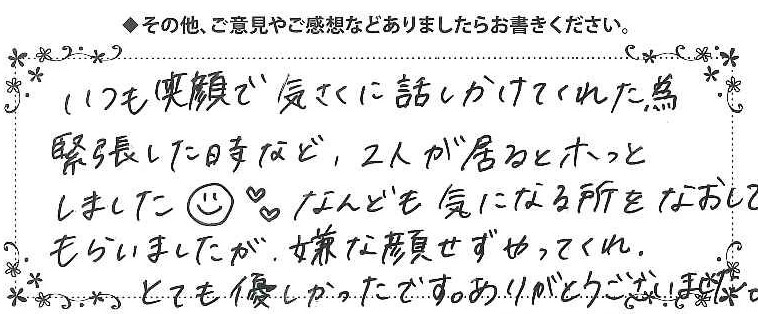 ◆その他、ご意見やご感想などありましたらお書きください。
いつも笑顔で気さくに話しかけてくれた為
緊張した時など、2人が居るとホっと
しました☺♡♡なんども気になる所をなおして
もらいましたが、嫌な顔せずやってくれ、
とても優しかったです。ありがとうございました。